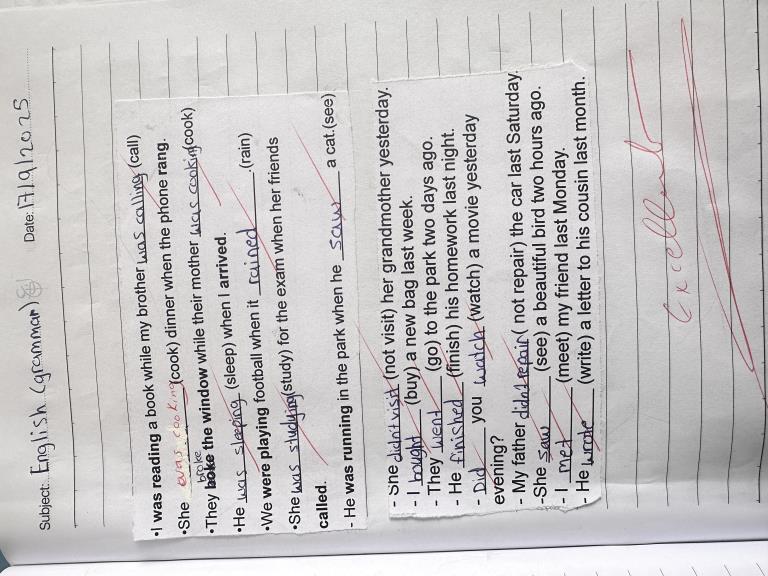 Subject: English (grammar) Date: 17/9/2025
•I was reading a book while my brother was calling (call)
•She was cooking (cook) dinner when the phone rang.
broke
•They boke the window while their mother was cooking (cook)
•He was sleeping (sleep) when I arrived.
•We were playing football when it rained (rain)
•She was studying (study) for the exam when her friends
called.
- He was running in the park when he saw a cat.(see)
- She didn't visit (not visit) her grandmother yesterday.
- I bought (buy) a new bag last week.
- They went (go) to the park two days ago.
- He finished (finish) his homework last night.
- Did you watch (watch) a movie yesterday
evening?
- My father didn't repair ( not repair) the car last Saturday.
-She saw (see) a beautiful bird two hours ago.
- I met (meet) my friend last Monday.
- He wrote (write) a letter to his cousin last month.
Excellent